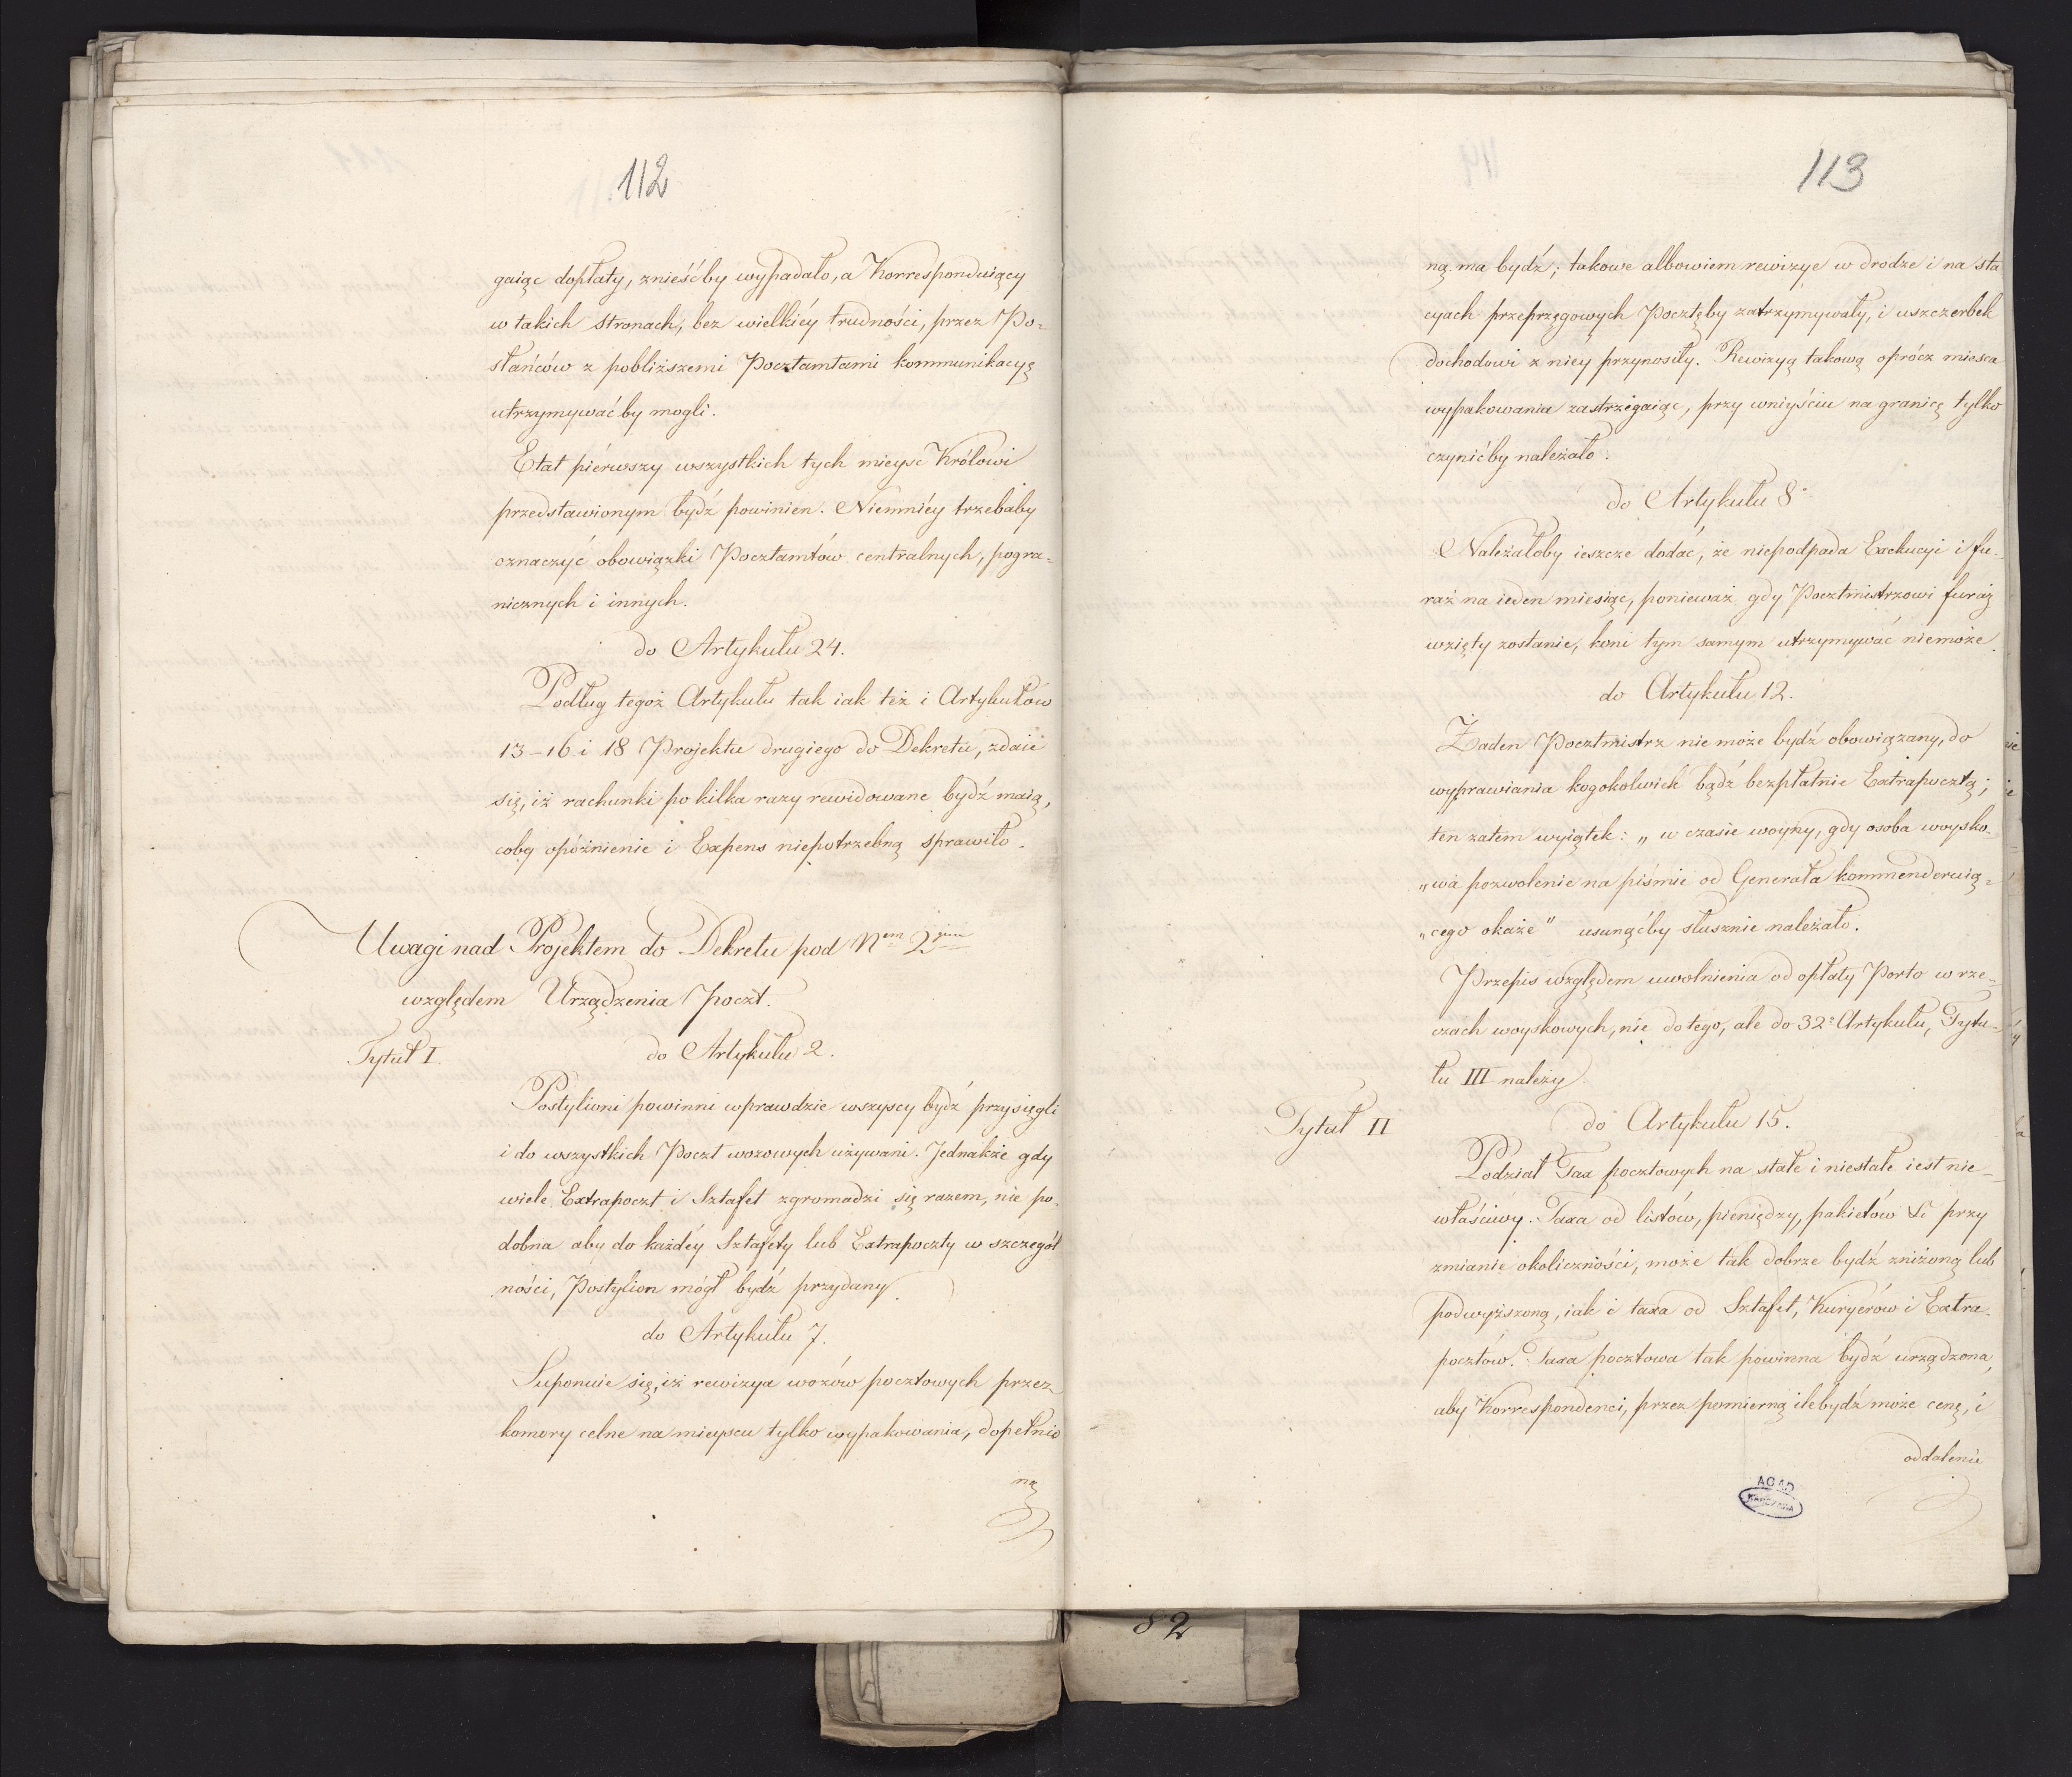 112
gaiąc dopłaty, znieśćby wypadało, a Korresponduiący
w takich stronach, bez wielkiéy trudności, przez Po=
słańców z pobliższemi Pocztamtami kommunikacyą
utrzymywaćby mogli.
Etat piérwszy wszystkich tych mieysc Królowi
przedstawionym bydź powinien. Niemniéy trzebaby
oznaczyć obowiązki Pocztamtów centralnych, pogra=
nicznych i innych.
do Artykułu 24.
Podług tegoż Artykułu tak iak też i Artykułów
13-16 i 18 Projektu drugiego do Dekretu, zdaie
się, iż rachunki po kilka razy rewidowane bydź maią,
coby opóźnienie i Expens niepotrzebną sprawiło.
Uwagi nad Projektem do Dekretu pod Nem 2gim
względem Urządzenia Poczt.
Tytuł I. do Artykułu 2.
Postylioni powinni wprawdzie wszyscy bydź przysięgli
i do wszystkich Poczt wozowych używani. Jednakże gdy
wiele Extrapoczt i Sztafet zgromadzi się razem, nie po=
dobna aby do każdéy Sztafety lub Extrapoczty w szczegól
ności, Postylion mógł bydź przydany.
do Artykułu 7.
Suponuie się, iż rewizya wozów pocztowych przez
komory celne na mieyscu tylko wypakowania, dopełnio
ną
113
ną ma bydź; takowe albowiem rewizye w drodze i na sta
cyach przeprzęgowych Pocztęby zatrzymywały, i uszczerbek
dochodowi z niey przynosiły. Rewizyą takową oprócz miesca
wypakowania zastrzegaiąc, przy wniyściu na granicę tylko
czynićby należało.
do Artykułu 8.
Należałoby ieszcze dodać, że niepodpada Exekucyi i fu=
raż na ieden miesiąc, ponieważ gdy Pocztmistrzowi furaż
wzięty zostanie, koni tym samym utrzymywać niemoże.
do Artykułu 12.
Żaden Pocztmistrz nie może bydź obowiązany, do
wyprawiania kogokolwiek bądź bezpłatnie Extrapocztą;
ten zatem wyiątek: „w czasie woyny, gdy osoba woysko=
„wa pozwolenie na piśmie od Generała kommenderuią=
„cego okaże" usunąćby słusznie należało.
Przepis względem uwolnienia od opłaty Porto w rze=
czach woyskowych, nie do tego, ale do 32o Artykułu, Tytu=
łu III należy.
Tytuł II do Artykułu 15.
Podział Tax pocztowych na stałe i niestałe iest nie=
właściwy. Taxa od listów, pieniędzy, pakietów &c przy
zmianie okoliczności, może tak dobrze bydź zniżoną lub
podwyższoną, iak i taxa od Sztafet, Kuryerów i Extra=
pocztów. Taxa pocztowa tak powinna bydź urządzona,
aby Korrespondenci, przez pomierną ile bydź może cenę, i
oddalenie
AGAD
WARSZAWA
82